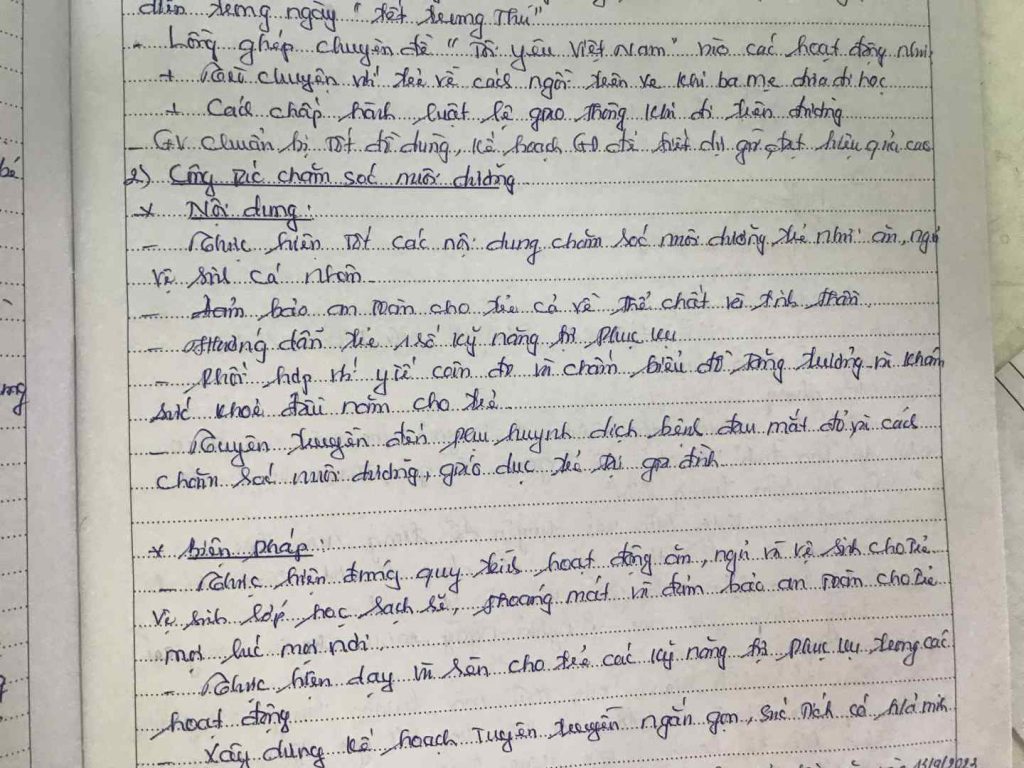 diễn trong ngày "tết trung Thu"
- Lồng ghép chuyên đề "Tôi yêu Việt Nam" vào các hoạt động như:
+ Trò chuyện với trẻ về cách ngồi trên xe khi ba mẹ đưa đi học
+ Cách chấp hành luật lệ giao thông khi đi trên đường
- GV chuẩn bị tốt đồ dùng, kế hoạch GD để tiết dự giờ đạt hiệu quả cao
2) Công tác chăm sóc nuôi dưỡng
* Nội dung:
- Thực hiện tốt các nội dung chăm sóc nuôi dưỡng trẻ như: ăn, ngủ
vệ sinh cá nhân
- Đảm bảo an toàn cho trẻ cả về thể chất và tinh thần
- Hướng dẫn trẻ 1 số kỹ năng tự phục vụ
- Phối hợp với y tế cân đo và chấm biểu đồ tăng trưởng và khám
sức khoẻ đầu năm cho trẻ
- Tuyên truyền đến phụ huynh dịch bệnh đau mắt đỏ và cách
chăm sóc nuôi dưỡng, giáo dục trẻ tại gia đình
* Biện pháp:
- Thực hiện đúng quy trình hoạt động ăn, ngủ và vệ sinh cho trẻ
vệ sinh lớp học sạch sẽ, thoáng mát và đảm bảo an toàn cho trẻ
mọi lúc mọi nơi
- Thực hiện dạy và rèn cho trẻ các kỹ năng tự phục vụ trong các
hoạt động
- Xây dựng kế hoạch tuyên truyền ngắn gọn, súc tích có h/ả minh